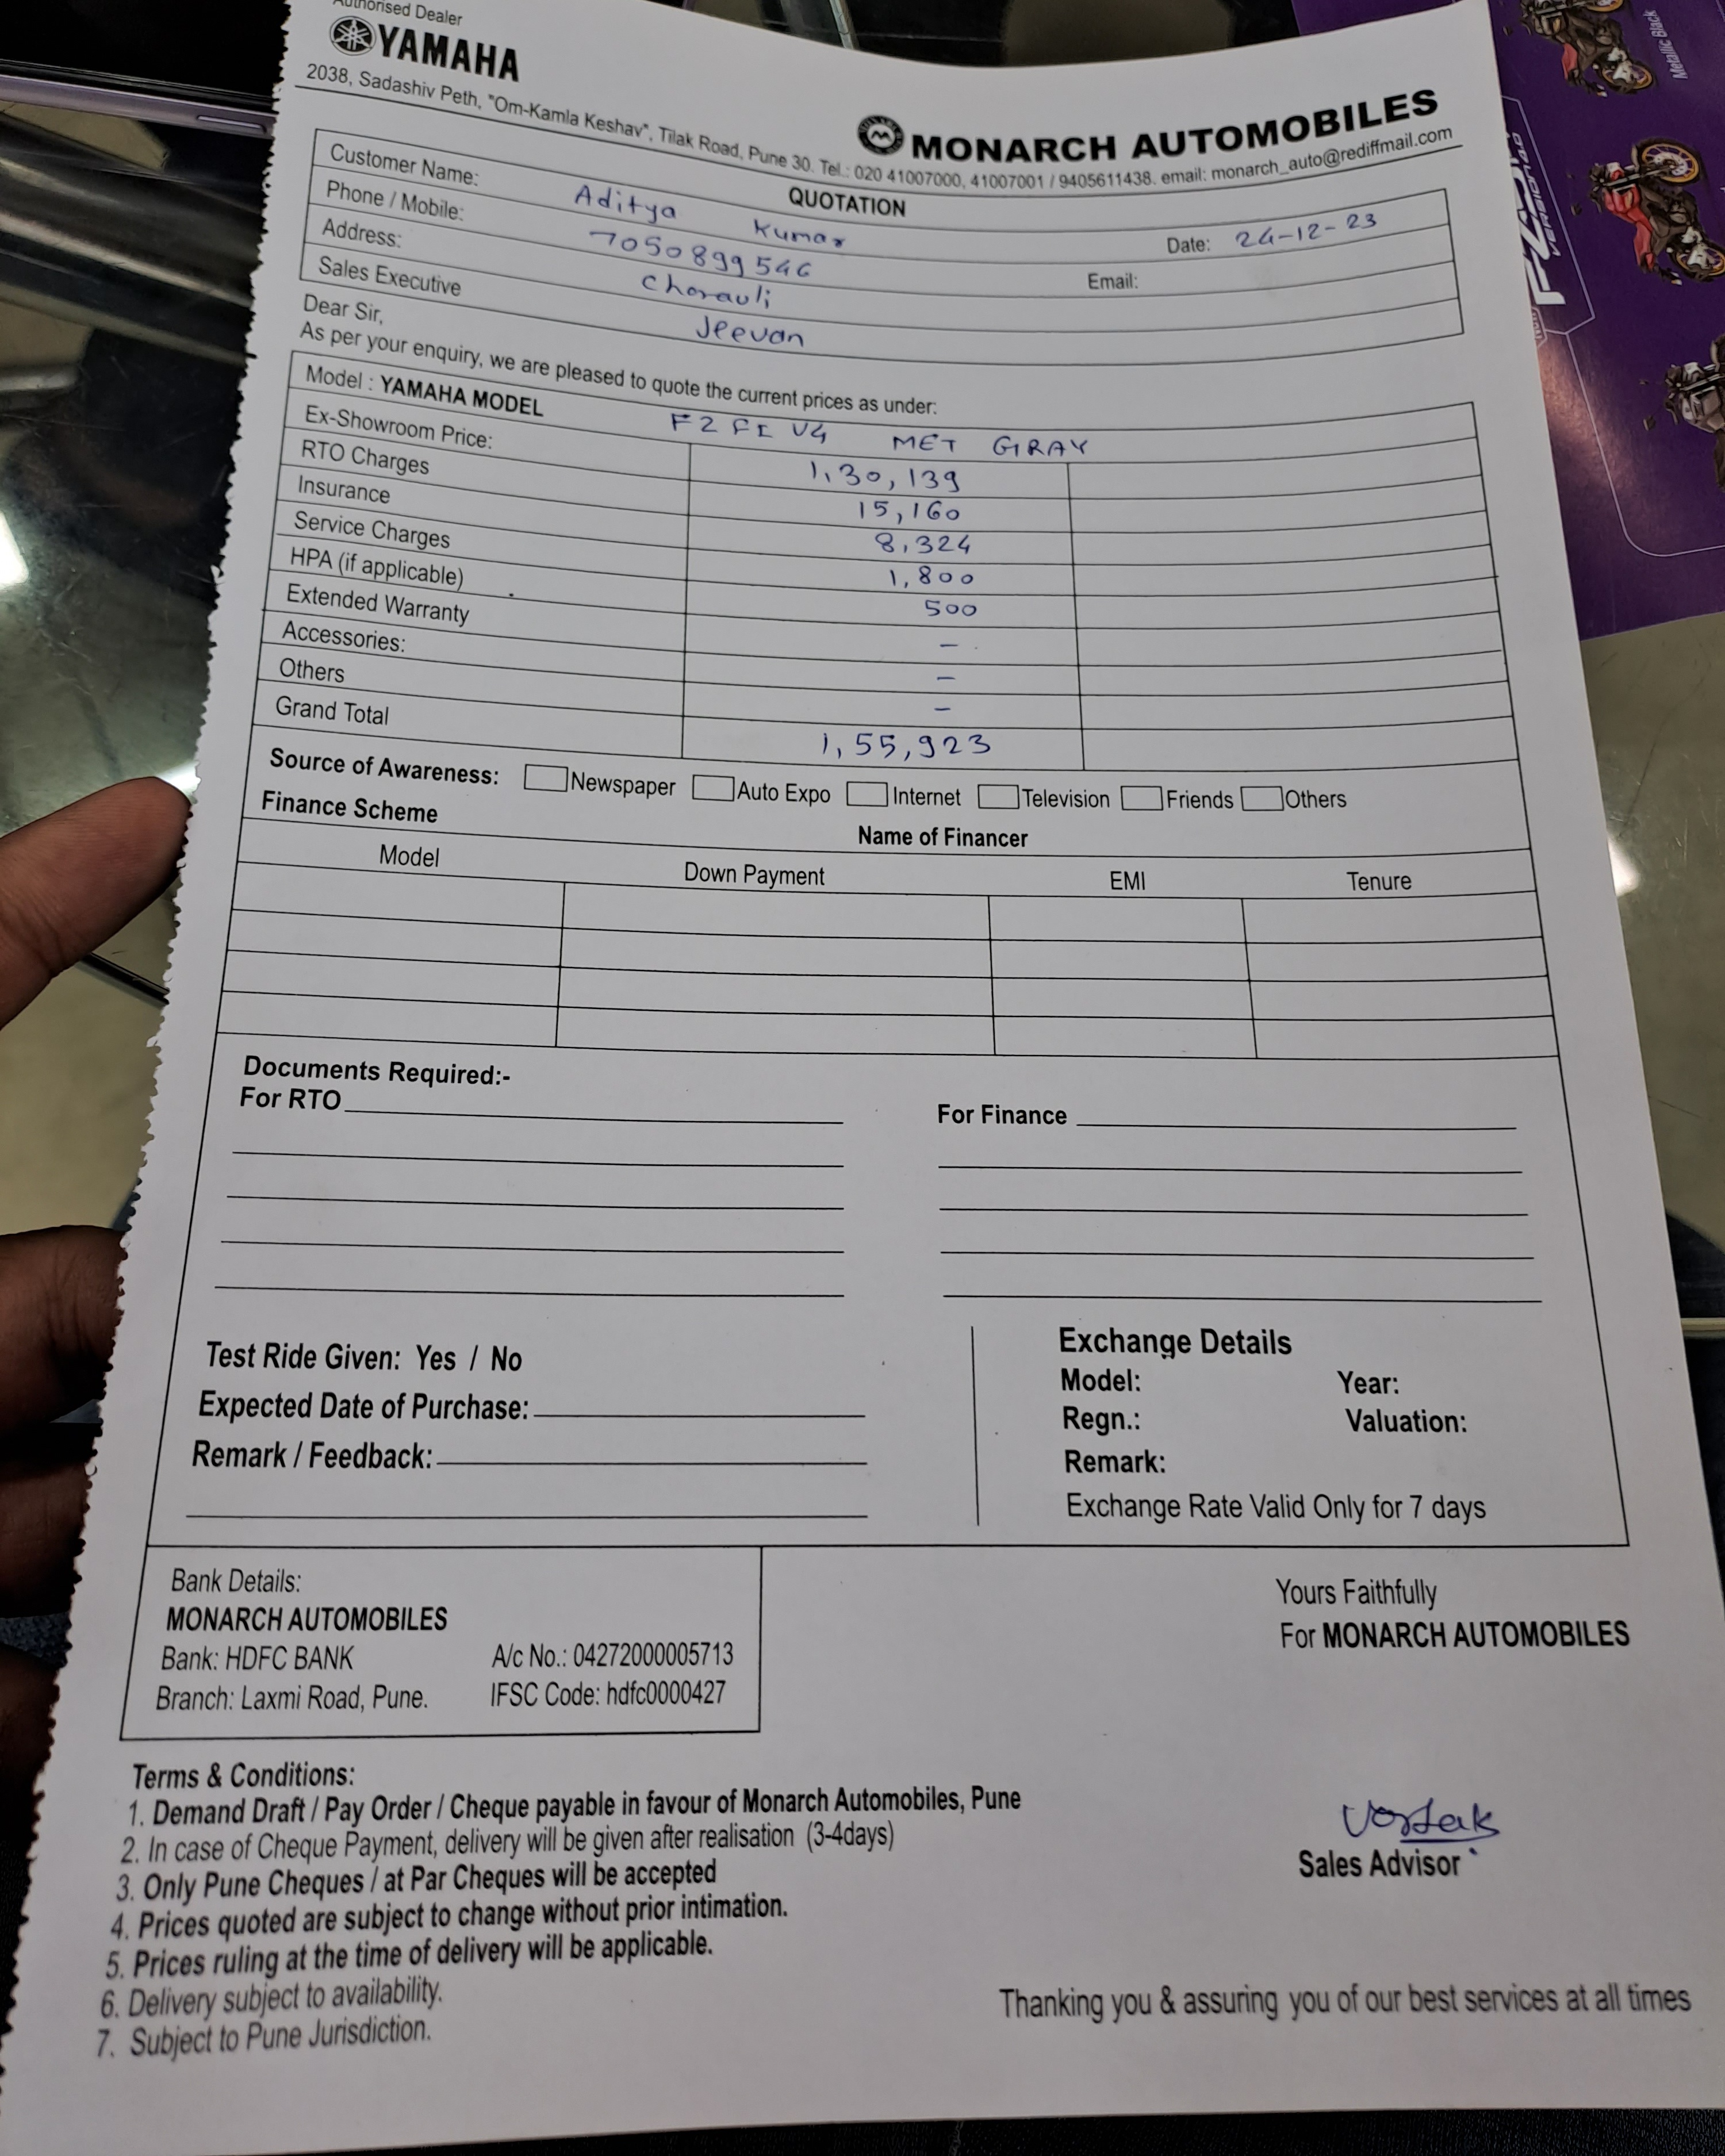 Authorised Dealer
YAMAHA
MONARCH AUTOMOBILES
2038, Sadashiv Peth, "Om-Kamla Keshav", Tilak Road, Pune 30. Tel.: 020 41007000, 41007001 / 9405611438. email: monarch_auto@rediffmail.com
QUOTATION
Customer Name: Aditya Kumar Date: 24-12-23
Phone / Mobile: 7050899546 Email:
Address: Chorauli
Sales Executive Jeevan
Dear Sir,
As per your enquiry, we are pleased to quote the current prices as under:
Model : YAMAHA MODEL FZ FI V4 MET GRAY
Ex-Showroom Price: 1,30,139
RTO Charges 15,160
Insurance 8,324
Service Charges 1,800
HPA (if applicable) 500
Extended Warranty –
Accessories: –
Others –
Grand Total 1,55,923
Source of Awareness: Newspaper Auto Expo Internet Television Friends Others
Finance Scheme Name of Financer
Model Down Payment EMI Tenure
Documents Required:-
For RTO For Finance
Test Ride Given: Yes / No
Expected Date of Purchase:
Remark / Feedback:
Exchange Details
Model: Year:
Regn.: Valuation:
Remark:
Exchange Rate Valid Only for 7 days
Bank Details:
MONARCH AUTOMOBILES
Bank: HDFC BANK A/c No.: 04272000005713
Branch: Laxmi Road, Pune. IFSC Code: hdfc0000427
Yours Faithfully
For MONARCH AUTOMOBILES
Sales Advisor
Terms & Conditions:
1. Demand Draft / Pay Order / Cheque payable in favour of Monarch Automobiles, Pune
2. In case of Cheque Payment, delivery will be given after realisation (3-4days)
3. Only Pune Cheques / at Par Cheques will be accepted
4. Prices quoted are subject to change without prior intimation.
5. Prices ruling at the time of delivery will be applicable.
6. Delivery subject to availability.
7. Subject to Pune Jurisdiction.
Thanking you & assuring you of our best services at all times
Metallic Black